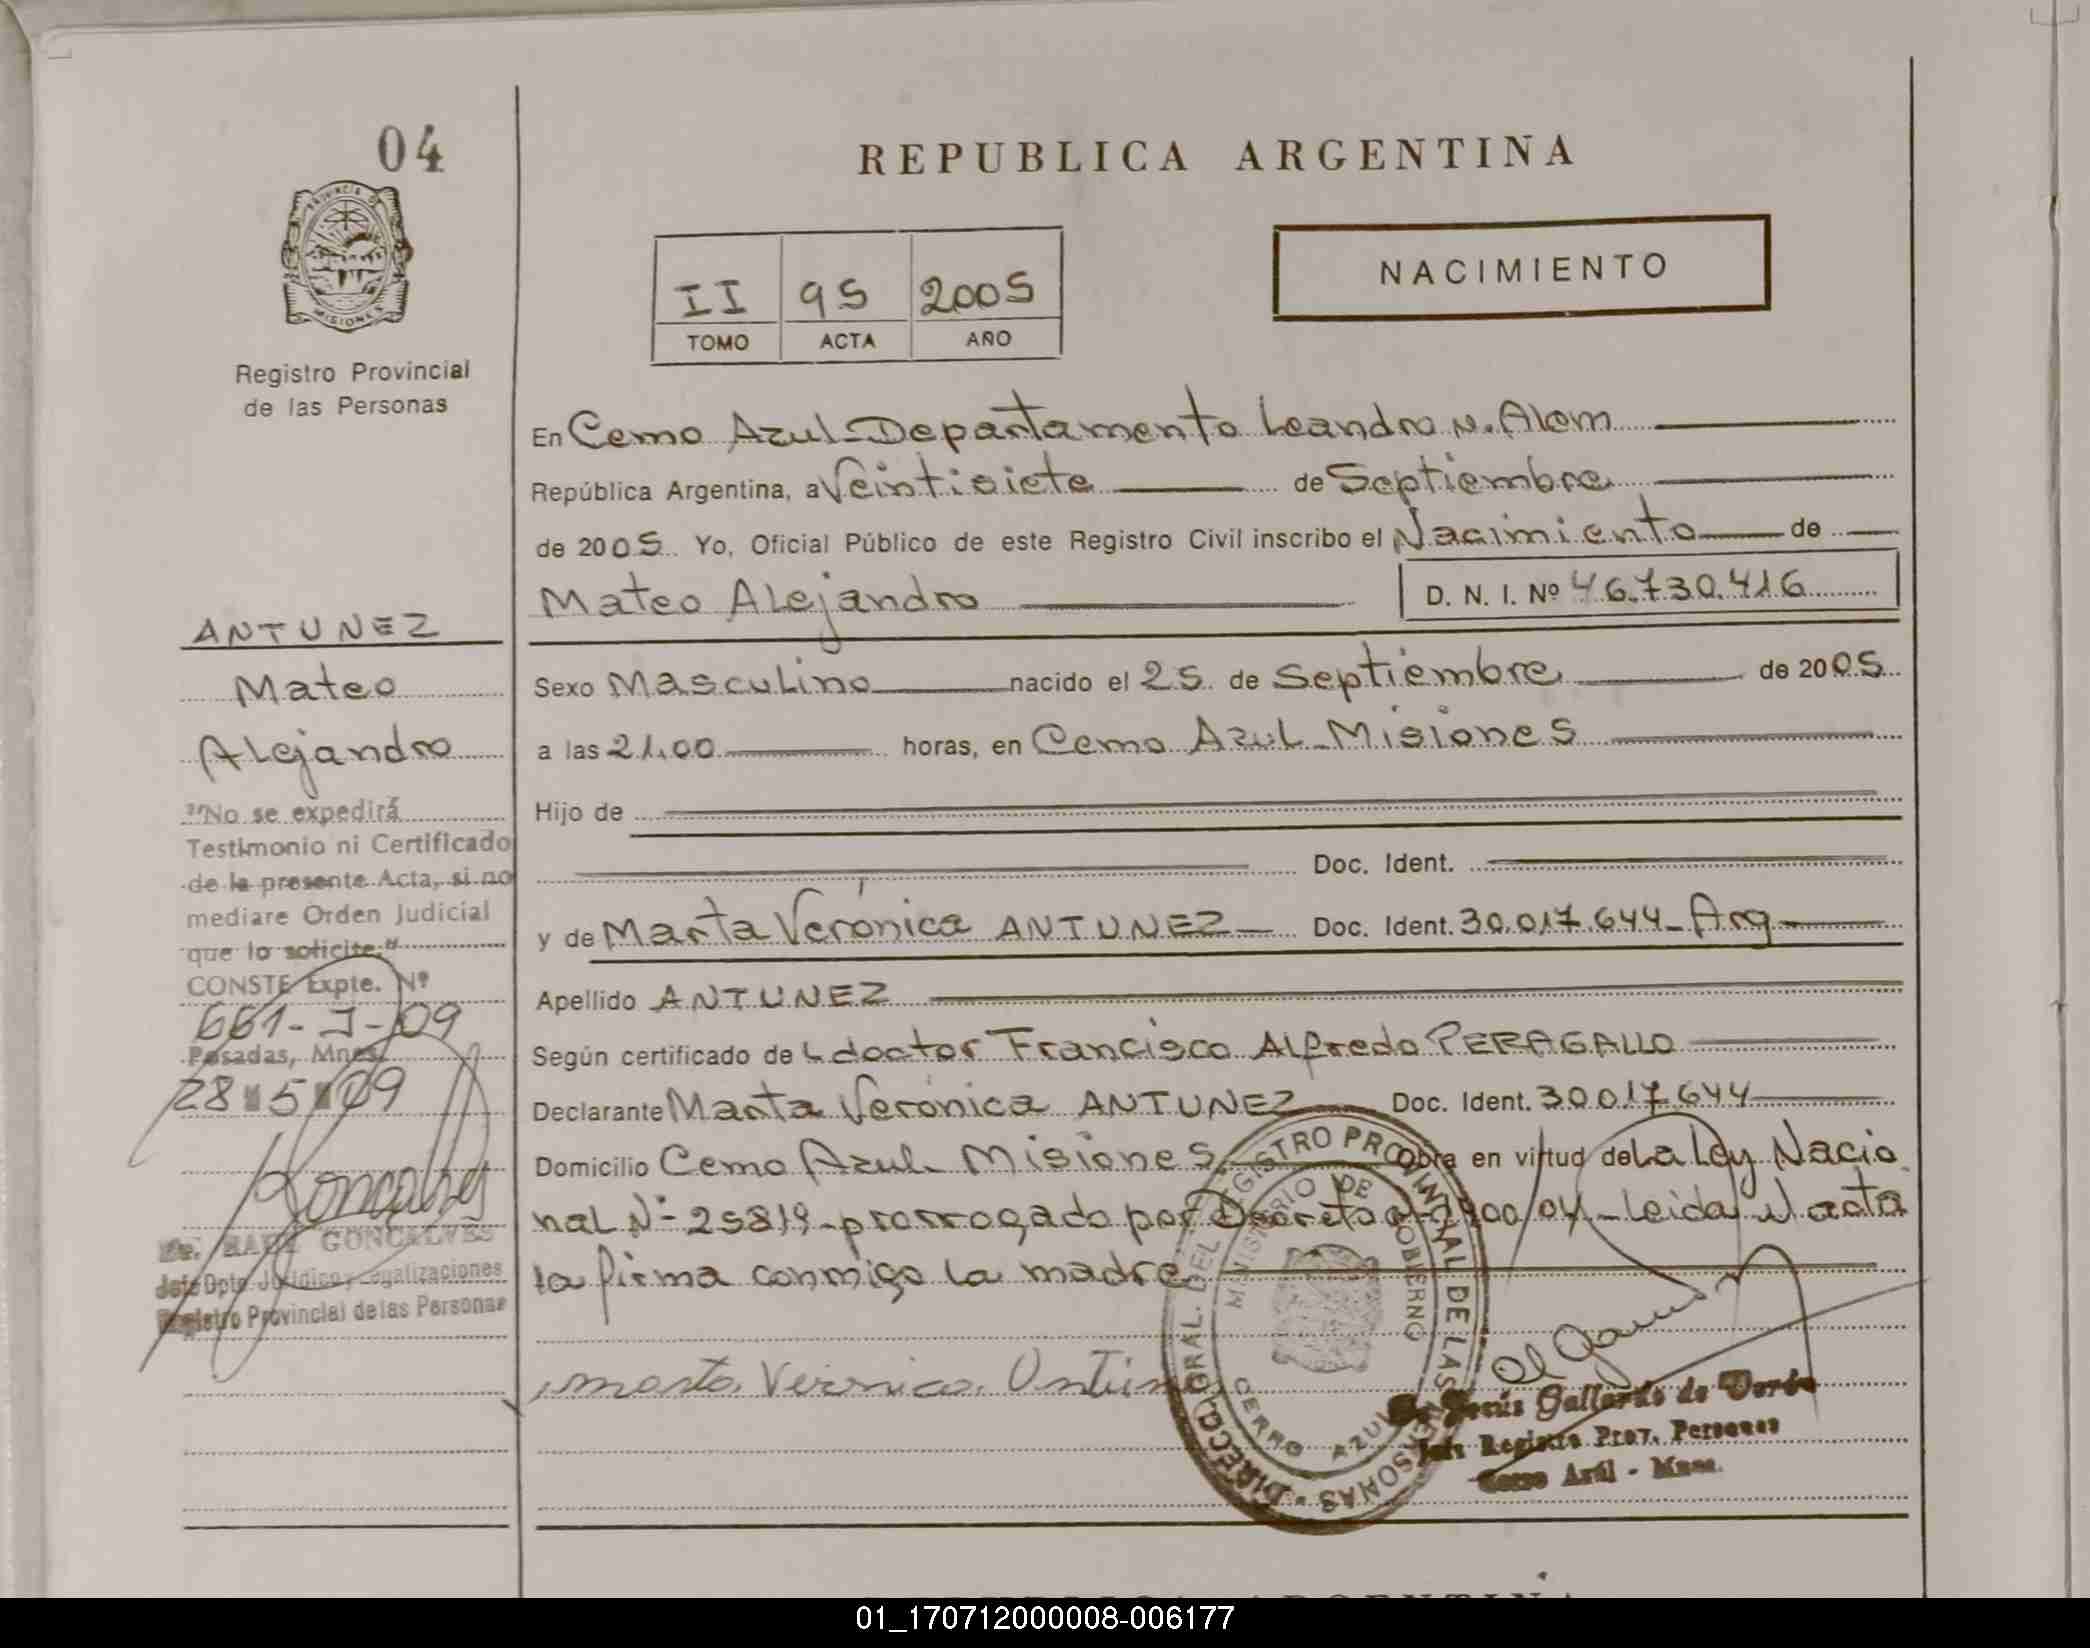 04
PROVINCIA DE
MISIONES
Registro Provincial
de las Personas
REPUBLICA ARGENTINA
II 95 2005
TOMO ACTA AÑO
NACIMIENTO
En Cerro Azul-Departamento Leandro N. Alem
República Argentina, a Veintisiete de Septiembre
de 2005. Yo, Oficial Público de este Registro Civil inscribo el Nacimiento de
Mateo Alejandro D. N. I. Nº 46.730.416
Sexo Masculino nacido el 25 de Septiembre de 2005
a las 21.00 horas, en Cerro Azul-Misiones
Hijo de
Doc. Ident.
y de Marta Verónica ANTUNEZ Doc. Ident. 30.017.644-Arg
Apellido ANTUNEZ
Según certificado de L doctor Francisco Alfredo PERAGALLO
Declarante Marta Verónica ANTUNEZ Doc. Ident. 30017644
Domicilio Cerro Azul-Misiones Obra en virtud de La Ley Nacio
nal Nº 25819-prorrogado por Decreto Leida el acta
la firma conmigo la madre
ANTUNEZ
Mateo
Alejandro
"No se expedirá
Testimonio ni Certificado
de la presente Acta, si no
mediare Orden Judicial
que lo solicite."
CONSTE Expte. Nº
661-J-09
Posadas, Mnes
28 5 09
GONCALVES
Jefe Dpto. Jurídico y Legalizaciones
Registro Provincial de las Personas
Marta Veronica
DIRECC. GRAL. DEL REGISTRO PROVINCIAL DE LAS PERSONAS
MINISTERIO DE GOBIERNO
CERRO AZUL
Jesús Gallardo de
Jefe Registro Prov. Personas
Cerro Azul - Mnes.
01_170712000008-006177